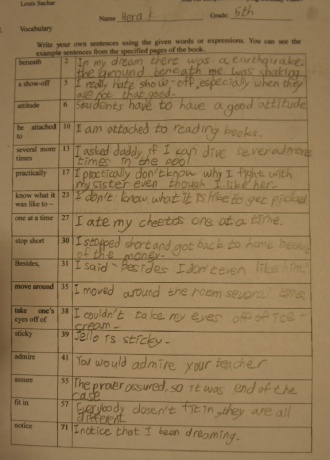 Louis Sachar
Name Hera K Grade: 5th
Vocabulary
Write your own sentences using the given words or expressions. You can see the
example sentences from the specified pages of the book.
beneath 2 In my dream there was a earthquake.
the ground beneath me was shaking
a show-off 5 I really hate show-off, especially when they
are not that good.
attitude 6 Seudents have to have a good attitude
be attached 10 I am attached to reading books.
to
several more 13 I asked daddy if I can dive several more
times times in the pool
practically 17 I practically don't know why I fight with
my sister even though I like her.
know what it 23 I don't know what it is like to get picked
was like to ~
one at a time 27 I ate my cheetos one at a time.
stop short 30 I stopped short and got back to home
of the money.
Besides, 31 I said "Besides I don't even like him."
move around 35 I moved around the room several times
take one's 38 I couldn't take my eyes off of ice-
eyes off of cream.
sticky 39 Jello is sticky.
admire 41 You would admire your teacher
assure 55 The assured, so it was end of the
case
fit in 57 Everybody dosen't fit in, they are all
different
notice 71 I notice that I been dreaming.